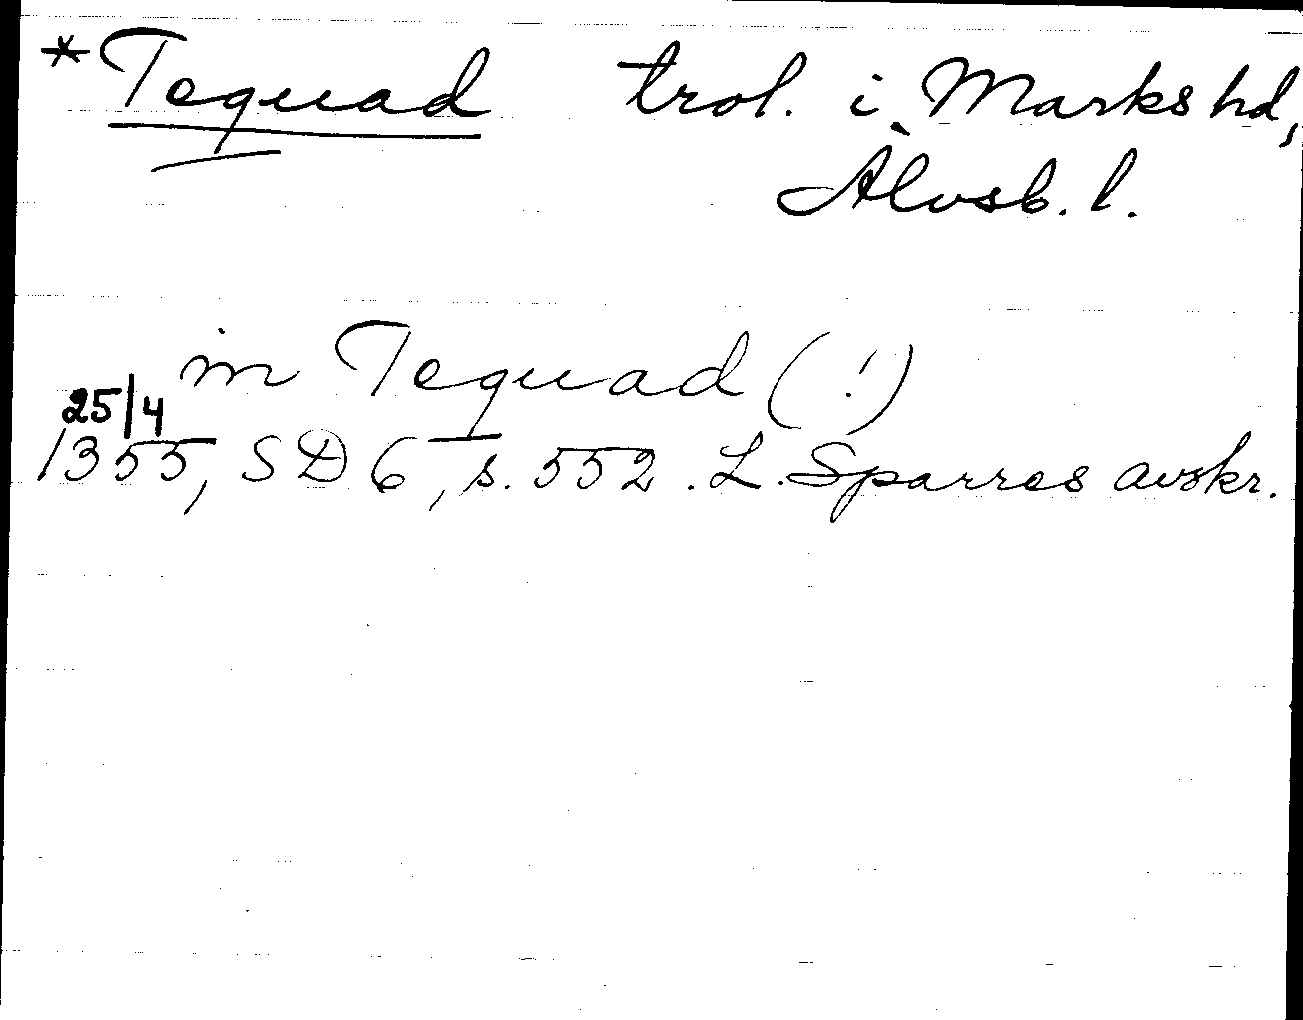 *Tequad trol. i Marks hd,
Älvsb. l.
in Tequad (!)
25/4
1355, SD 6, s. 552. L. Sparres avskr.